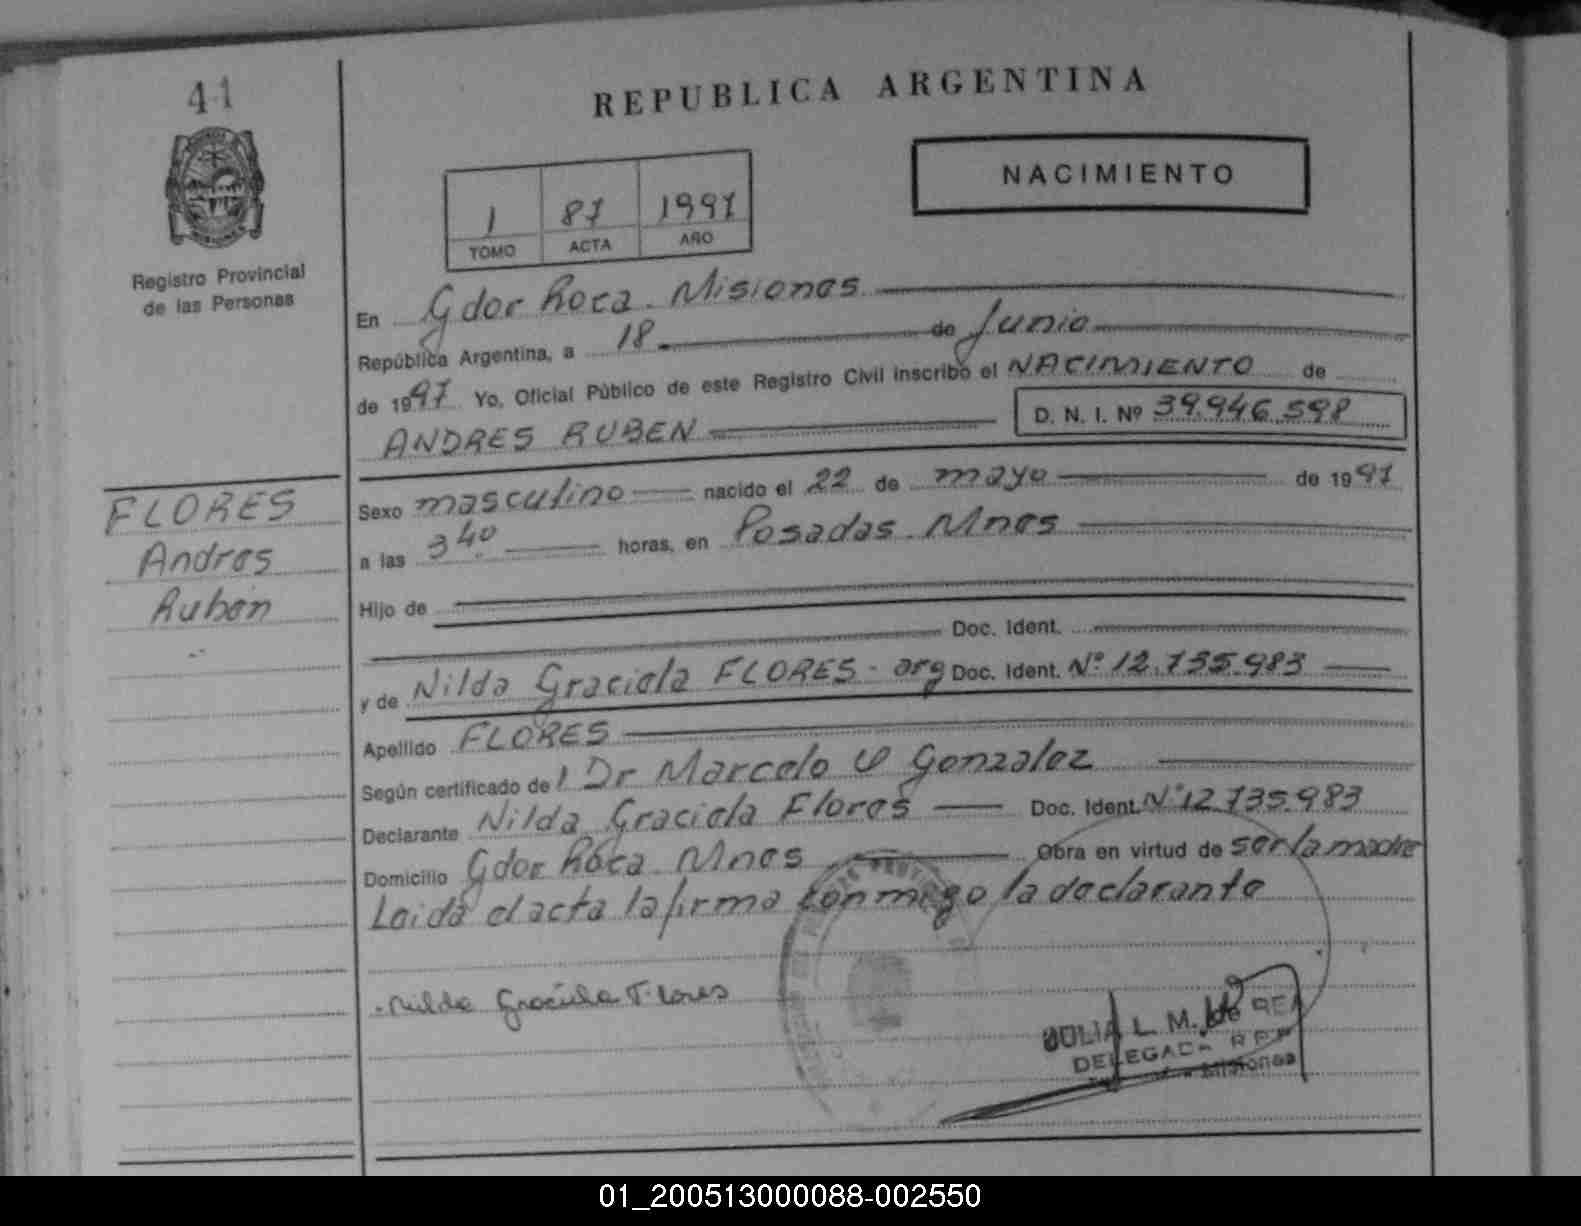 41
REPUBLICA ARGENTINA
NACIMIENTO
1 87 1997
TOMO ACTA AÑO
Registro Provincial
de las Personas
En Gdor Roca. Misiones
República Argentina, a 18 de Junio
de 1997 Yo, Oficial Público de este Registro Civil inscribo el NACIMIENTO de
ANDRES RUBEN D. N. I. Nº 39.946.598
FLORES
Andres
Ruben
Sexo masculino nacido el 22 de mayo de 1997
a las 3 40 horas, en Posadas. Mnes
Hijo de
Doc. Ident.
y de Nilda Graciela FLORES - arg Doc. Ident. Nº 12.735.983
Apellido FLORES
Según certificado del Dr Marcelo Gonzalez
Declarante Nilda Graciela Flores Doc. Ident. Nº 12.735.983
Domicilio Gdor Roca. Mnes Obra en virtud de ser la madre
Leida el acta la firma conmigo la declarante
Nilda Graciela Flores
JULIA L. M. de REA
DELEGADA R P P
Misiones
01_200513000088-002550